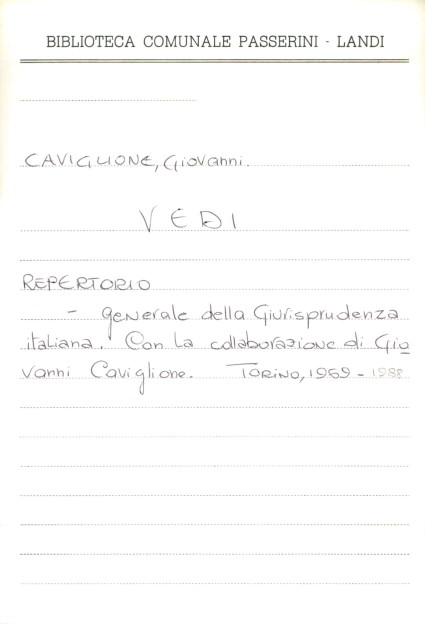 BIBLIOTECA COMUNALE PASSERINI - LANDI
CAVIGLIONE, Giovanni.
VEDI
REPERTORIO
- generale della Giurisprudenza
italiana. Con la collaborazione di Gio
vanni Caviglione. TORINO, 1969 - 1988